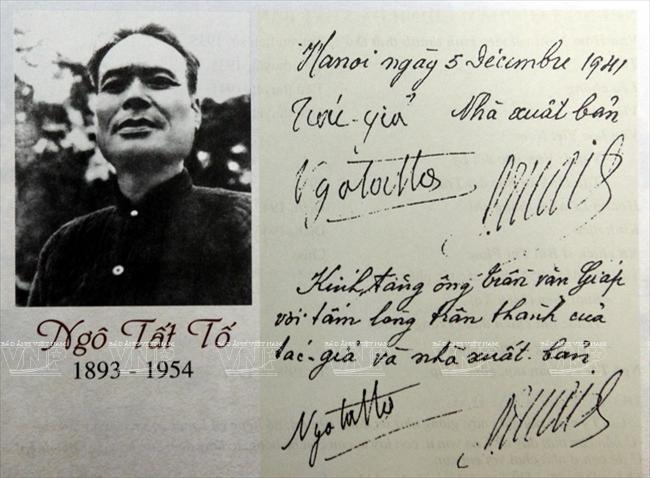 Ngô Tất Tố
1893 - 1954
Hanoi ngày 5 Décembre 1941
Tác-giả Nhà xuất bản
Ngotatto
Kính tặng ông trần văn Giáp
với tấm lòng trân thành của
tác-giả và nhà xuất-bản
Ngotatto
BÁO ẢNH VIỆT NAM
VNP